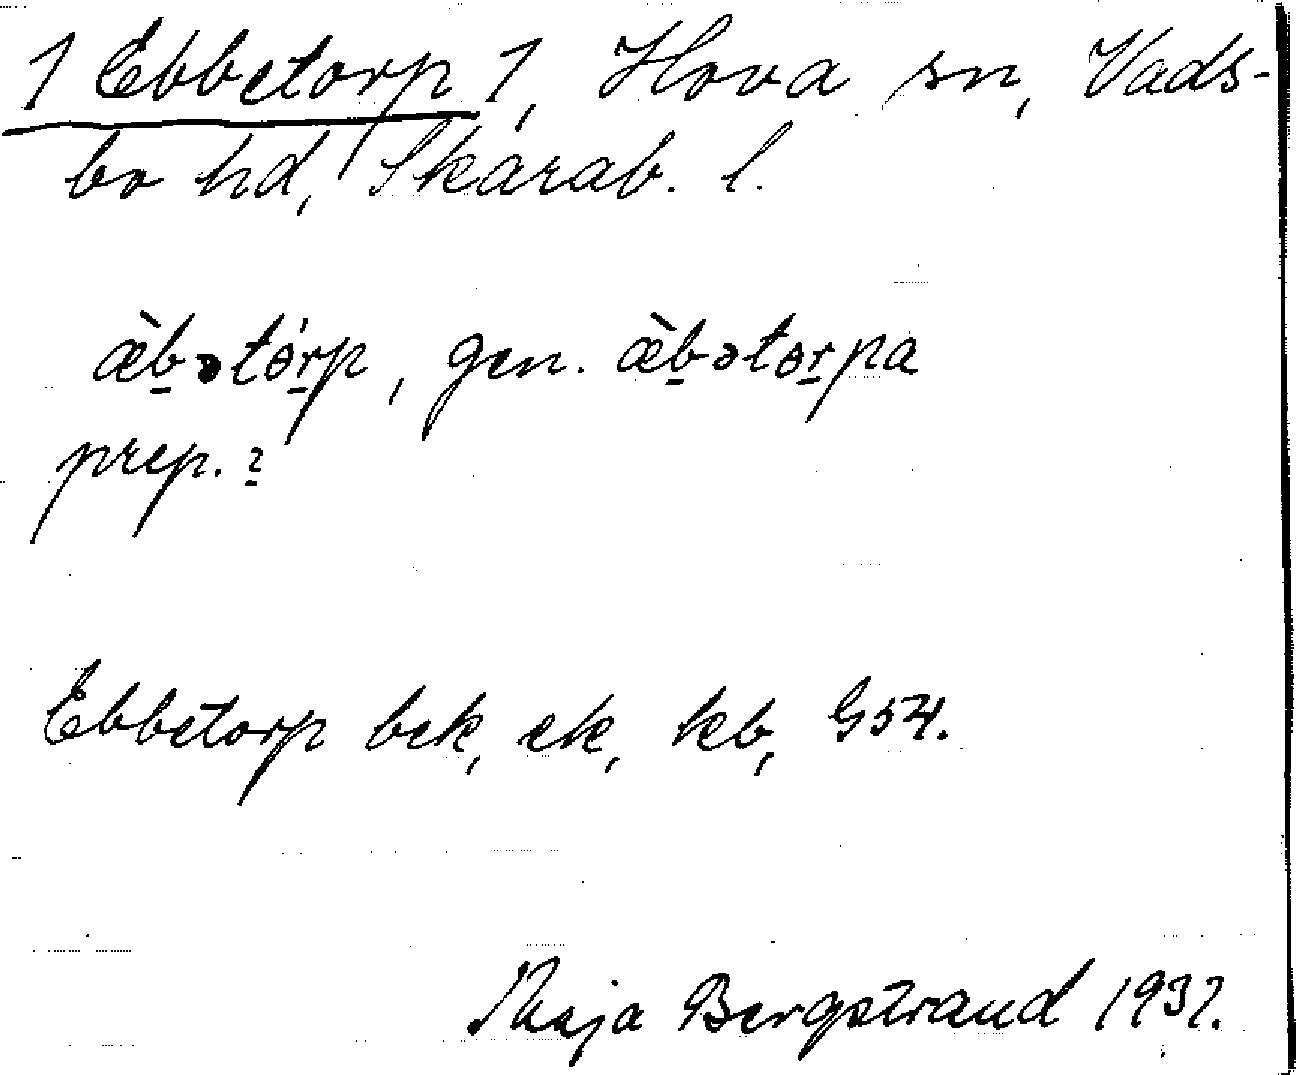 1 Ebbetorp 1, Hova sn, Vads-
bo hd, Skarab. l.
æ̀b̲ətɵ́r̲p, gen. æ̀b̲ətɵr̲pa
prep. ?
Ebbetorp bek, ek, kb, G54.
Maja Bergstrand 1937.